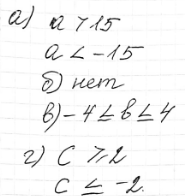 а) a > 15
a < -15
б) нет
в) -4 ≤ b ≤ 4
г) c ≥ 2
c ≤ -2.